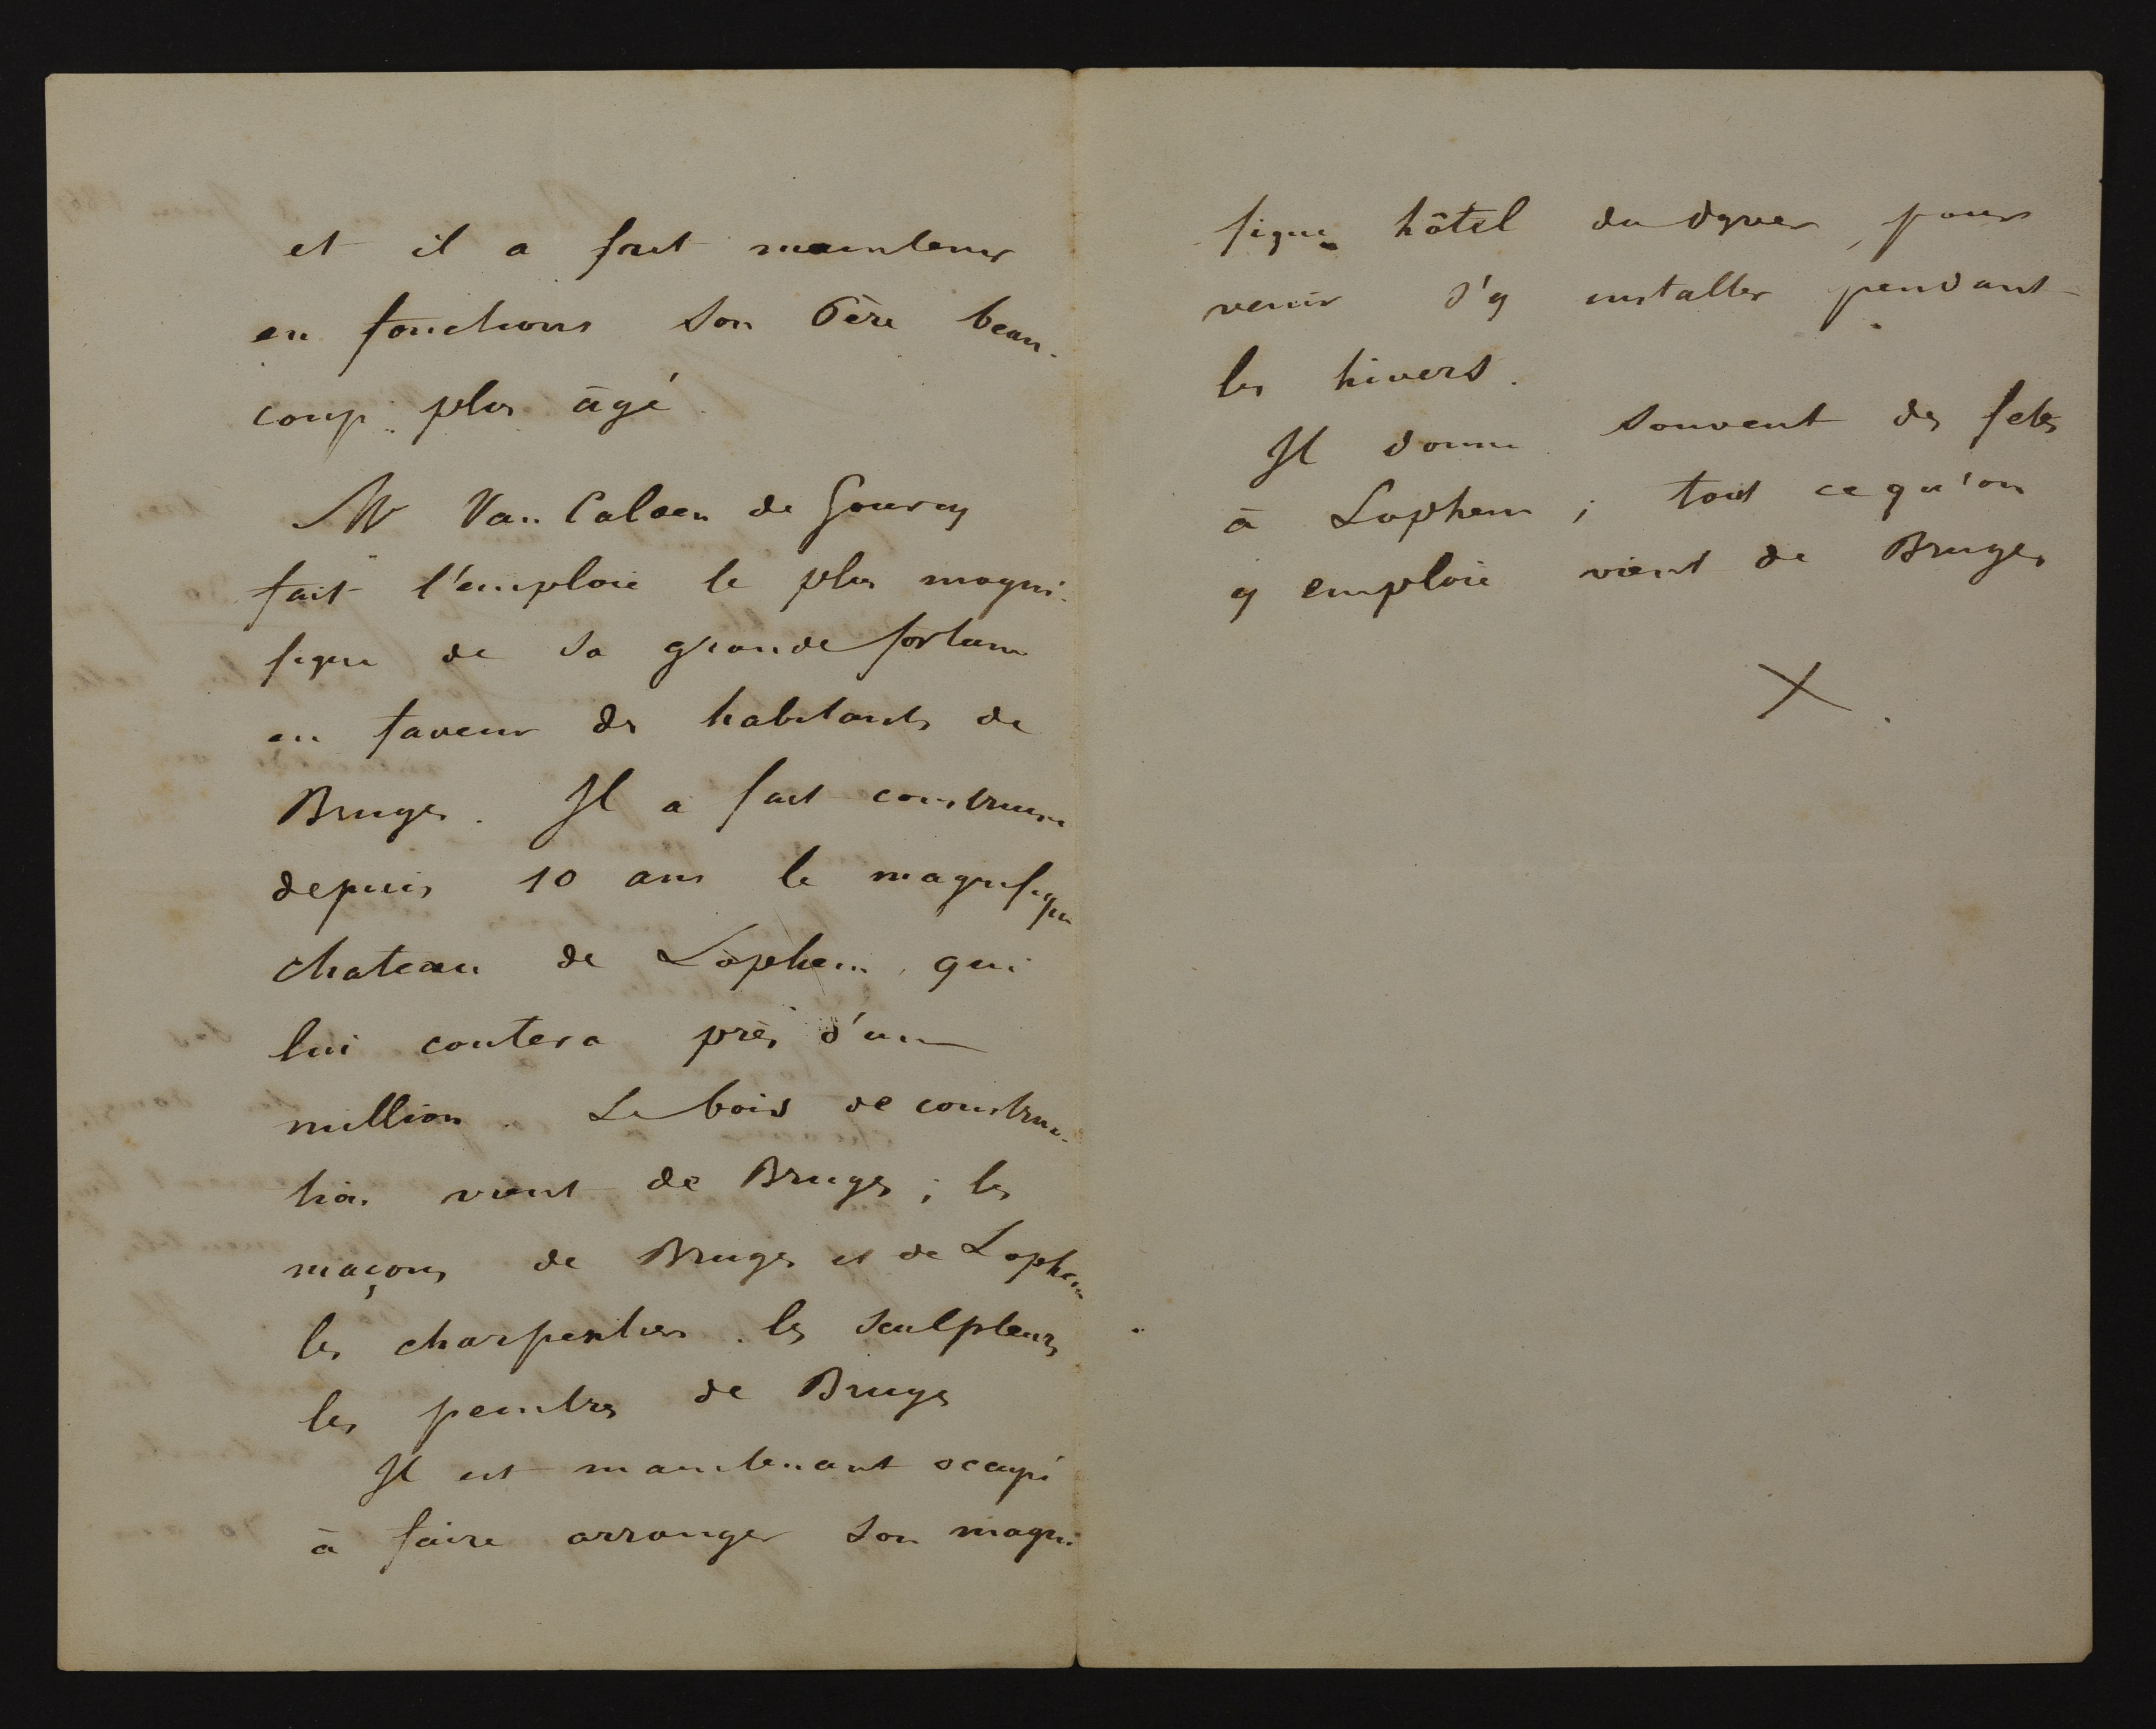 et il a fait maintenir
en fonctions son Père beau-
coup plus âgé.
Mr Van Caloen de Gourcy
fait l'emploie le plus magni-
fique de sa grande fortune
en faveur des habitants de
Bruges. Il a fait construire
depuis 10 ans le magnifique
chateau de Lophem, qui
lui coutera près d'un
million. Le bois de construc-
tion vient de Bruges ; les
maçons de Bruges et de Lophem
les charpentiers les sculpteurs
les peintres de Bruges
Il est maintenant occupé
à faire arranger son magni
fique hôtel du dyver, pour
venir s'y installer pendant
les hivers.
Il donne souvent des fetes
à Lophem ; tout ce qu'on
y emploie vient de Bruges
X.